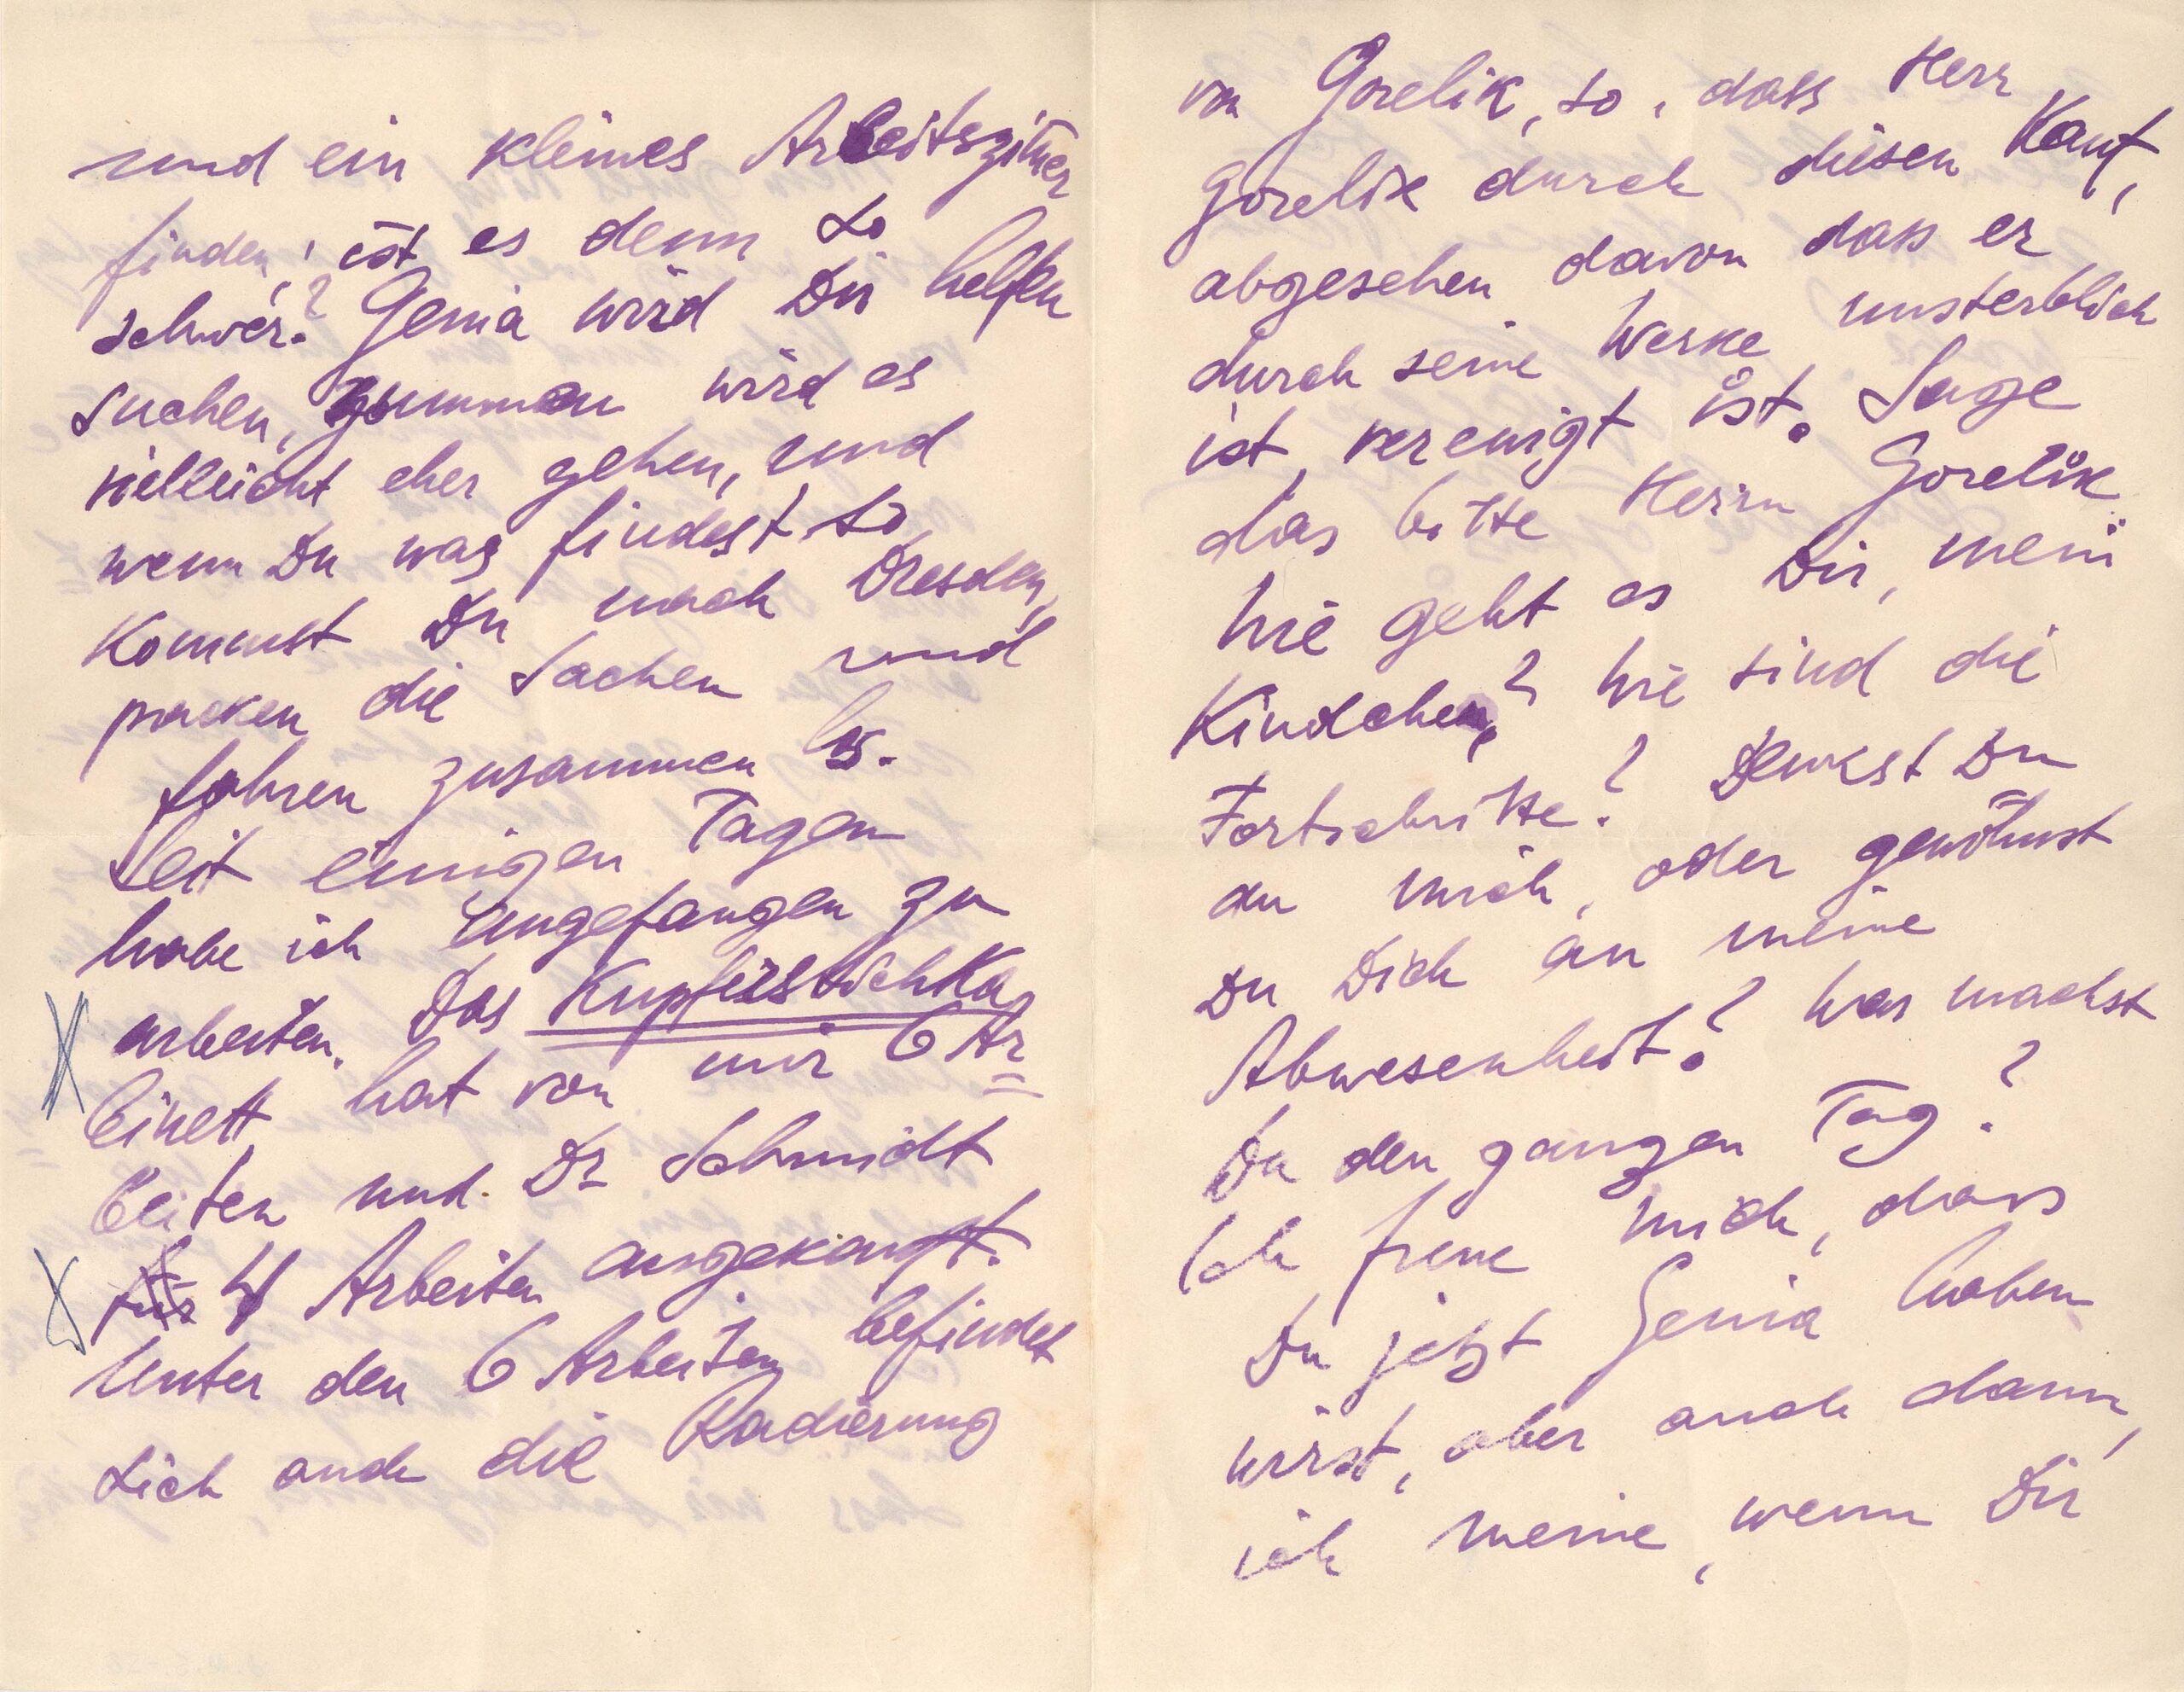 und ein kleines Arbeitszimer
finden, ist es denn so
schwer? Genia wird Dir helfen
suchen, zusammen wird es
vielleicht eher gehen, und
wenn Du was findest so
kommst Du nach Dresden,
packen die Sachen und
fahren zusammen
Seit einigen Tagen
habe ich angefangen zu
arbeiten. Das Kupferstichka
binett hat von mir 6 Ar=
beiten und Dr Schmidt
für 4 Arbeiten angekauft.
Unter den 6 Arbeiten befindet
sich auch die Radierung
von Gorelik, so, dass Herr
Gorelik durch diesen Kauf,
abgesehen davon dass er
durch seine Werke unsterblich
ist, verewigt ist. Sage
das bitte Herrn Gorelik
Wie geht es Dir, mein
Kindchen? Wie sind die
Fortschritte? Denkst Du
an mich, oder gewöhnst
Du Dich an meine
Abwesenheit? Was machst
Du den ganzen Tag?
Ich freue mich, dass
Du jetzt Genia haben
wirst, aber auch dann,
ich meine, wenn Dir